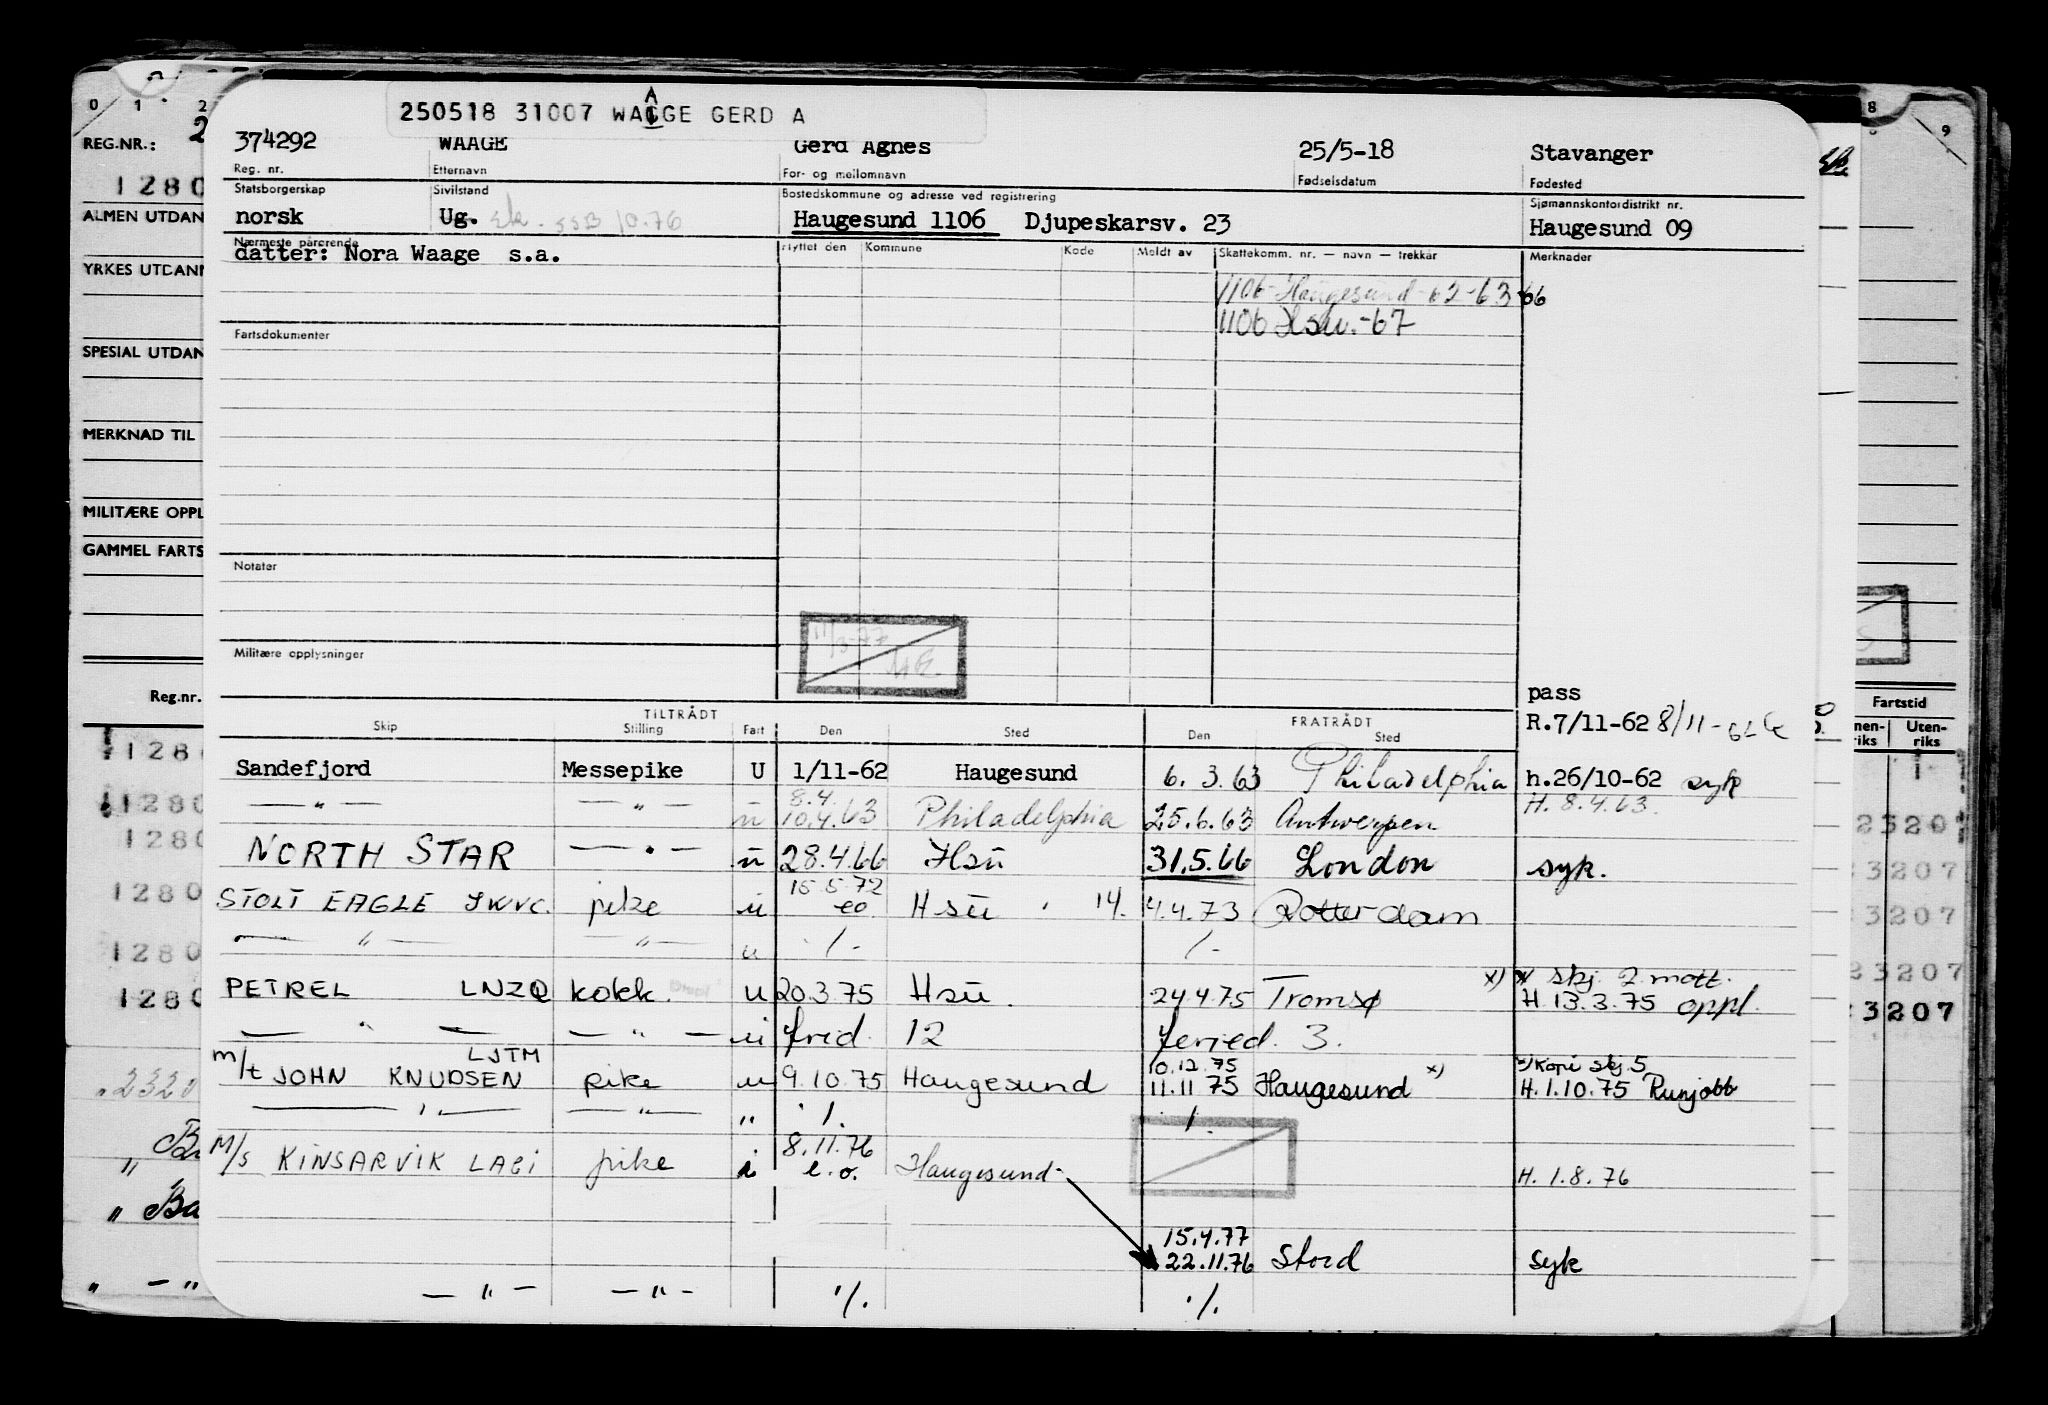 0 1 2
8 9
REG.NR.: 2
1280
ALMEN UTDAN
YRKES UTDANN
SPESIAL UTDAN
MERKNAD TIL
MILITÆRE OPPL
GAMMEL FARTS
Reg.nr.
250518 31007 WAAGE GERD A
374292 WAAGE Gerd Agnes 25/5-18 Stavanger
Reg. nr. Etternavn For- og mellomnavn Fødselsdatum Fødested
Statsborgerskap Sivilstand Bostedskommune og adresse ved registrering Sjømannskontordistrikt nr.
norsk Ug. ek. SSB 10.76 Haugesund 1106 Djupeskarsv. 23 Haugesund 09
Nærmeste pårørende Flyttet den Kommune Kode Meldt av Skattekomm. nr. — navn — trekkår Merknader
datter: Nora Waage s.a.
1106 Haugesund-62-63 66
1106 Hsu.-67
Fartsdokumenter
Notater
11/3-77
Militære opplysninger
pass
TILTRÅDT FRATRÅDT R.7/11-62 8/11-62
Skip Stilling Fart Den Sted Den Sted
Sandefjord Messepike U 1/11-62 Haugesund 6.3.63 Philadelphia h.26/10-62 syk
8.4.
— " — — " — u 10.4.63 Philadelphia 25.6.63 Antwerpen H. 8.4.63.
NORTH STAR — " — u 28.4.66 Hsu 31.5.66 London syk.
15.5.72
STOLT EAGLE JWVC. pike u eo. Hsu 14. 4.4.73 Rotterdam
— " — — " — u ./. ./.
x) x) skj. 2 mott.
PETREL LNZQ kokk. u 20.3.75 Hsu. 24.4.75 Tromsø H. 13.3.75 oppl.
— " — — " — u fried. 12 feried. 3.
LJTM 10.12.75 x) Kopi skj. 5
m/t JOHN KNUDSEN pike u 9.10.75 Haugesund 11.11.75 Haugesund x) H. 1.10.75 Runjobb
— " — — " — " ./. ./.
8.11.76
M/S KINSARVIK LAGI pike i e.o. Haugesund H. 1.8.76
15.4.77
22.11.76 Stord syk
— " — — " — ./. ./.
Fartstid
Uten-
riks
23207
23207
23207
23207